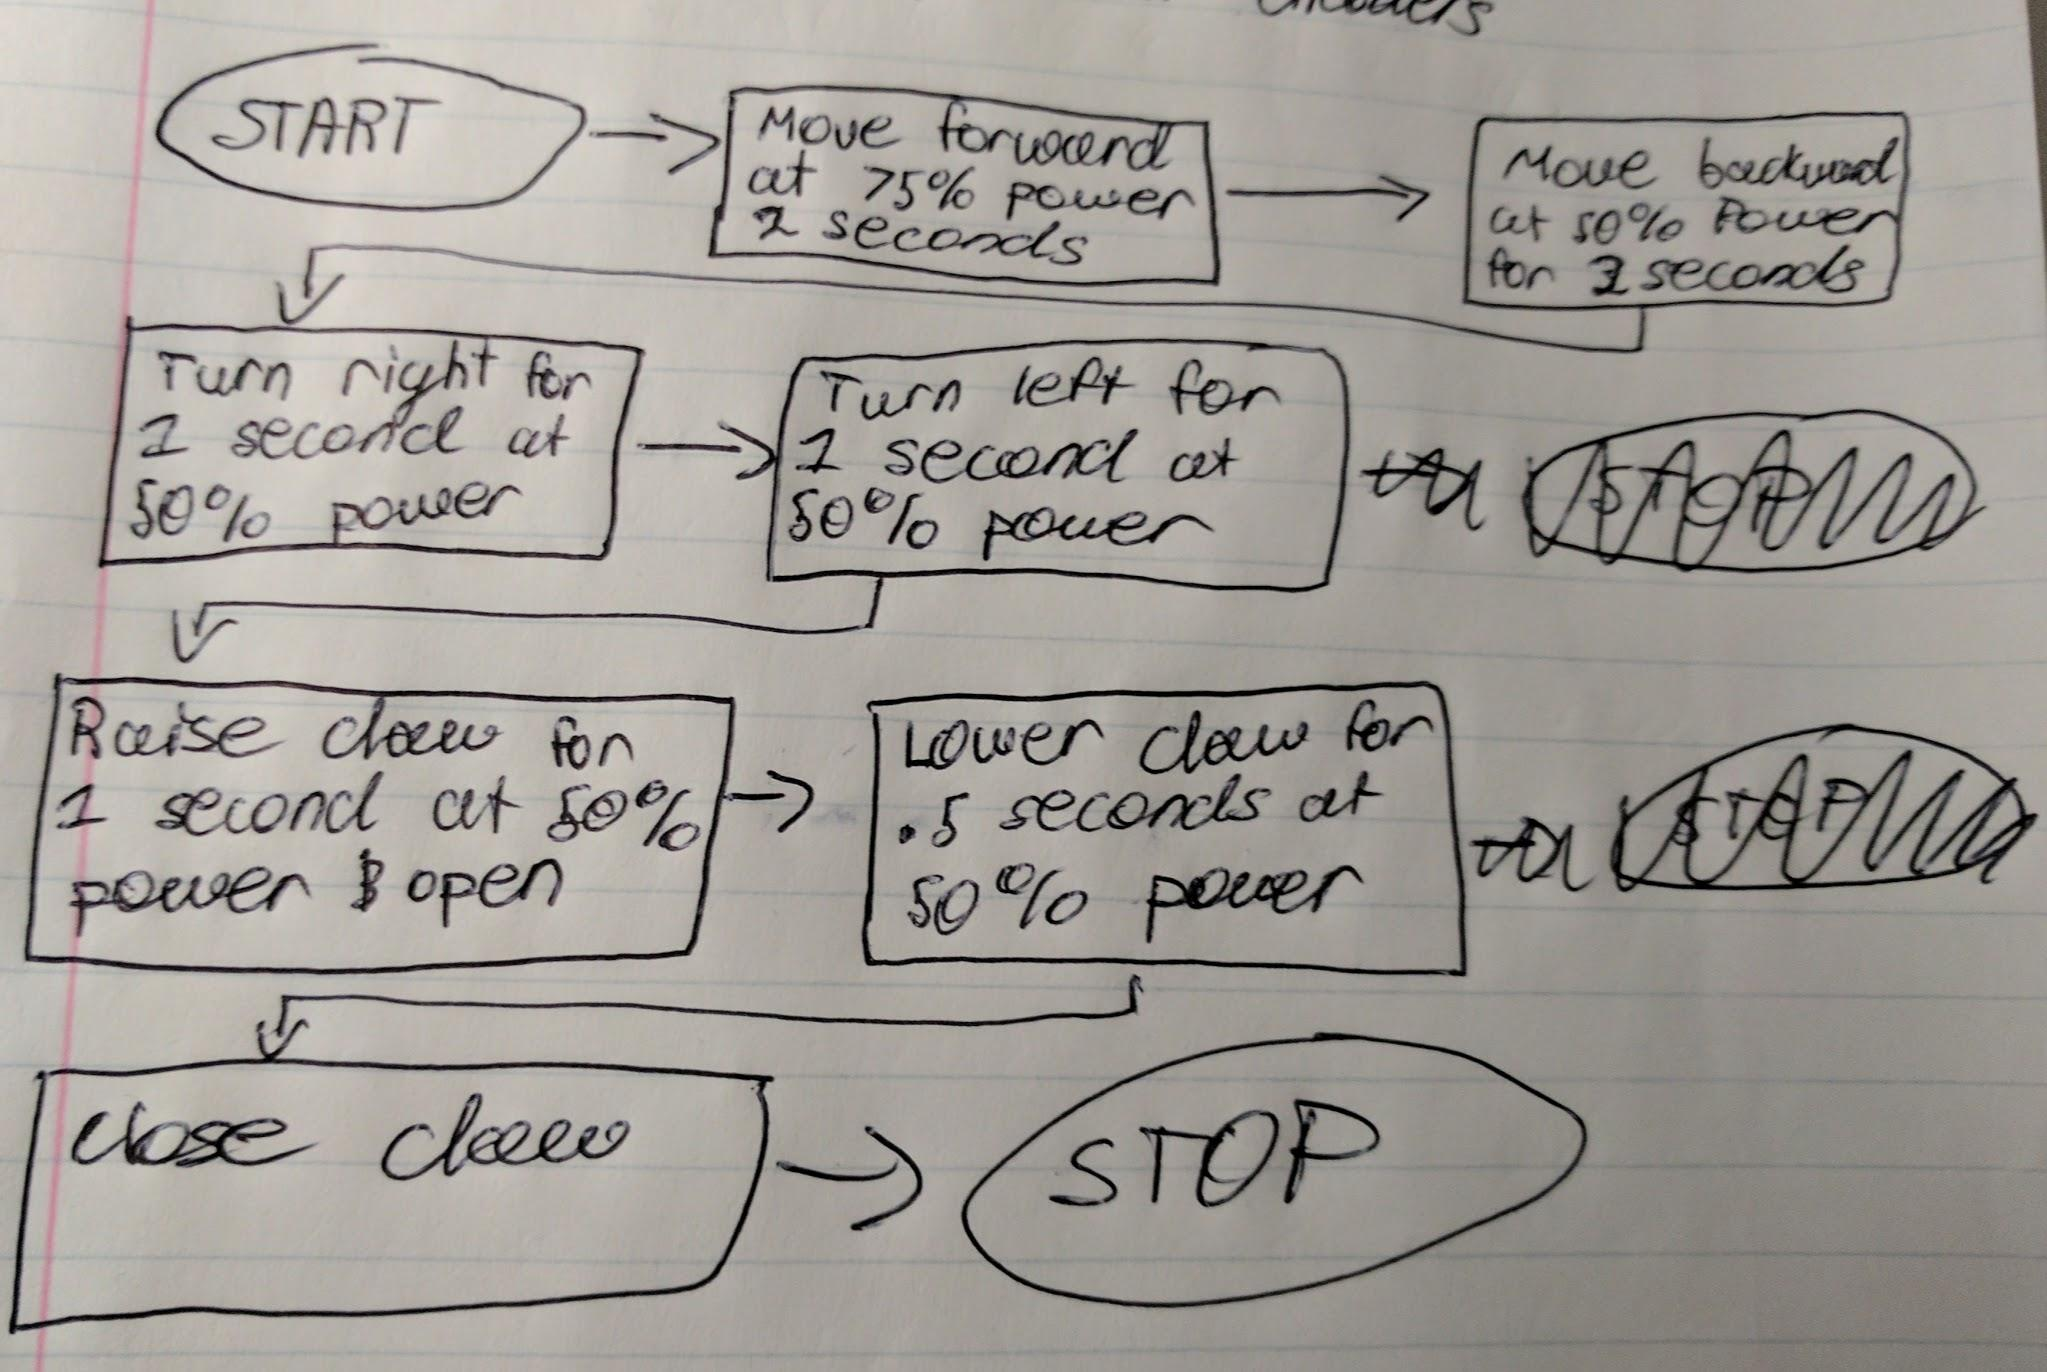 encoders
START
Move forward
at 75% power
2 seconds
Move backward
at 50% Power
for seconds
Turn right for
1 second at
50% power
Turn left for
1 second at
50% power
STOP
Raise claw for
1 second at 50%
power & open
Lower claw for
.5 seconds at
50% power
STOP
close claw
STOP